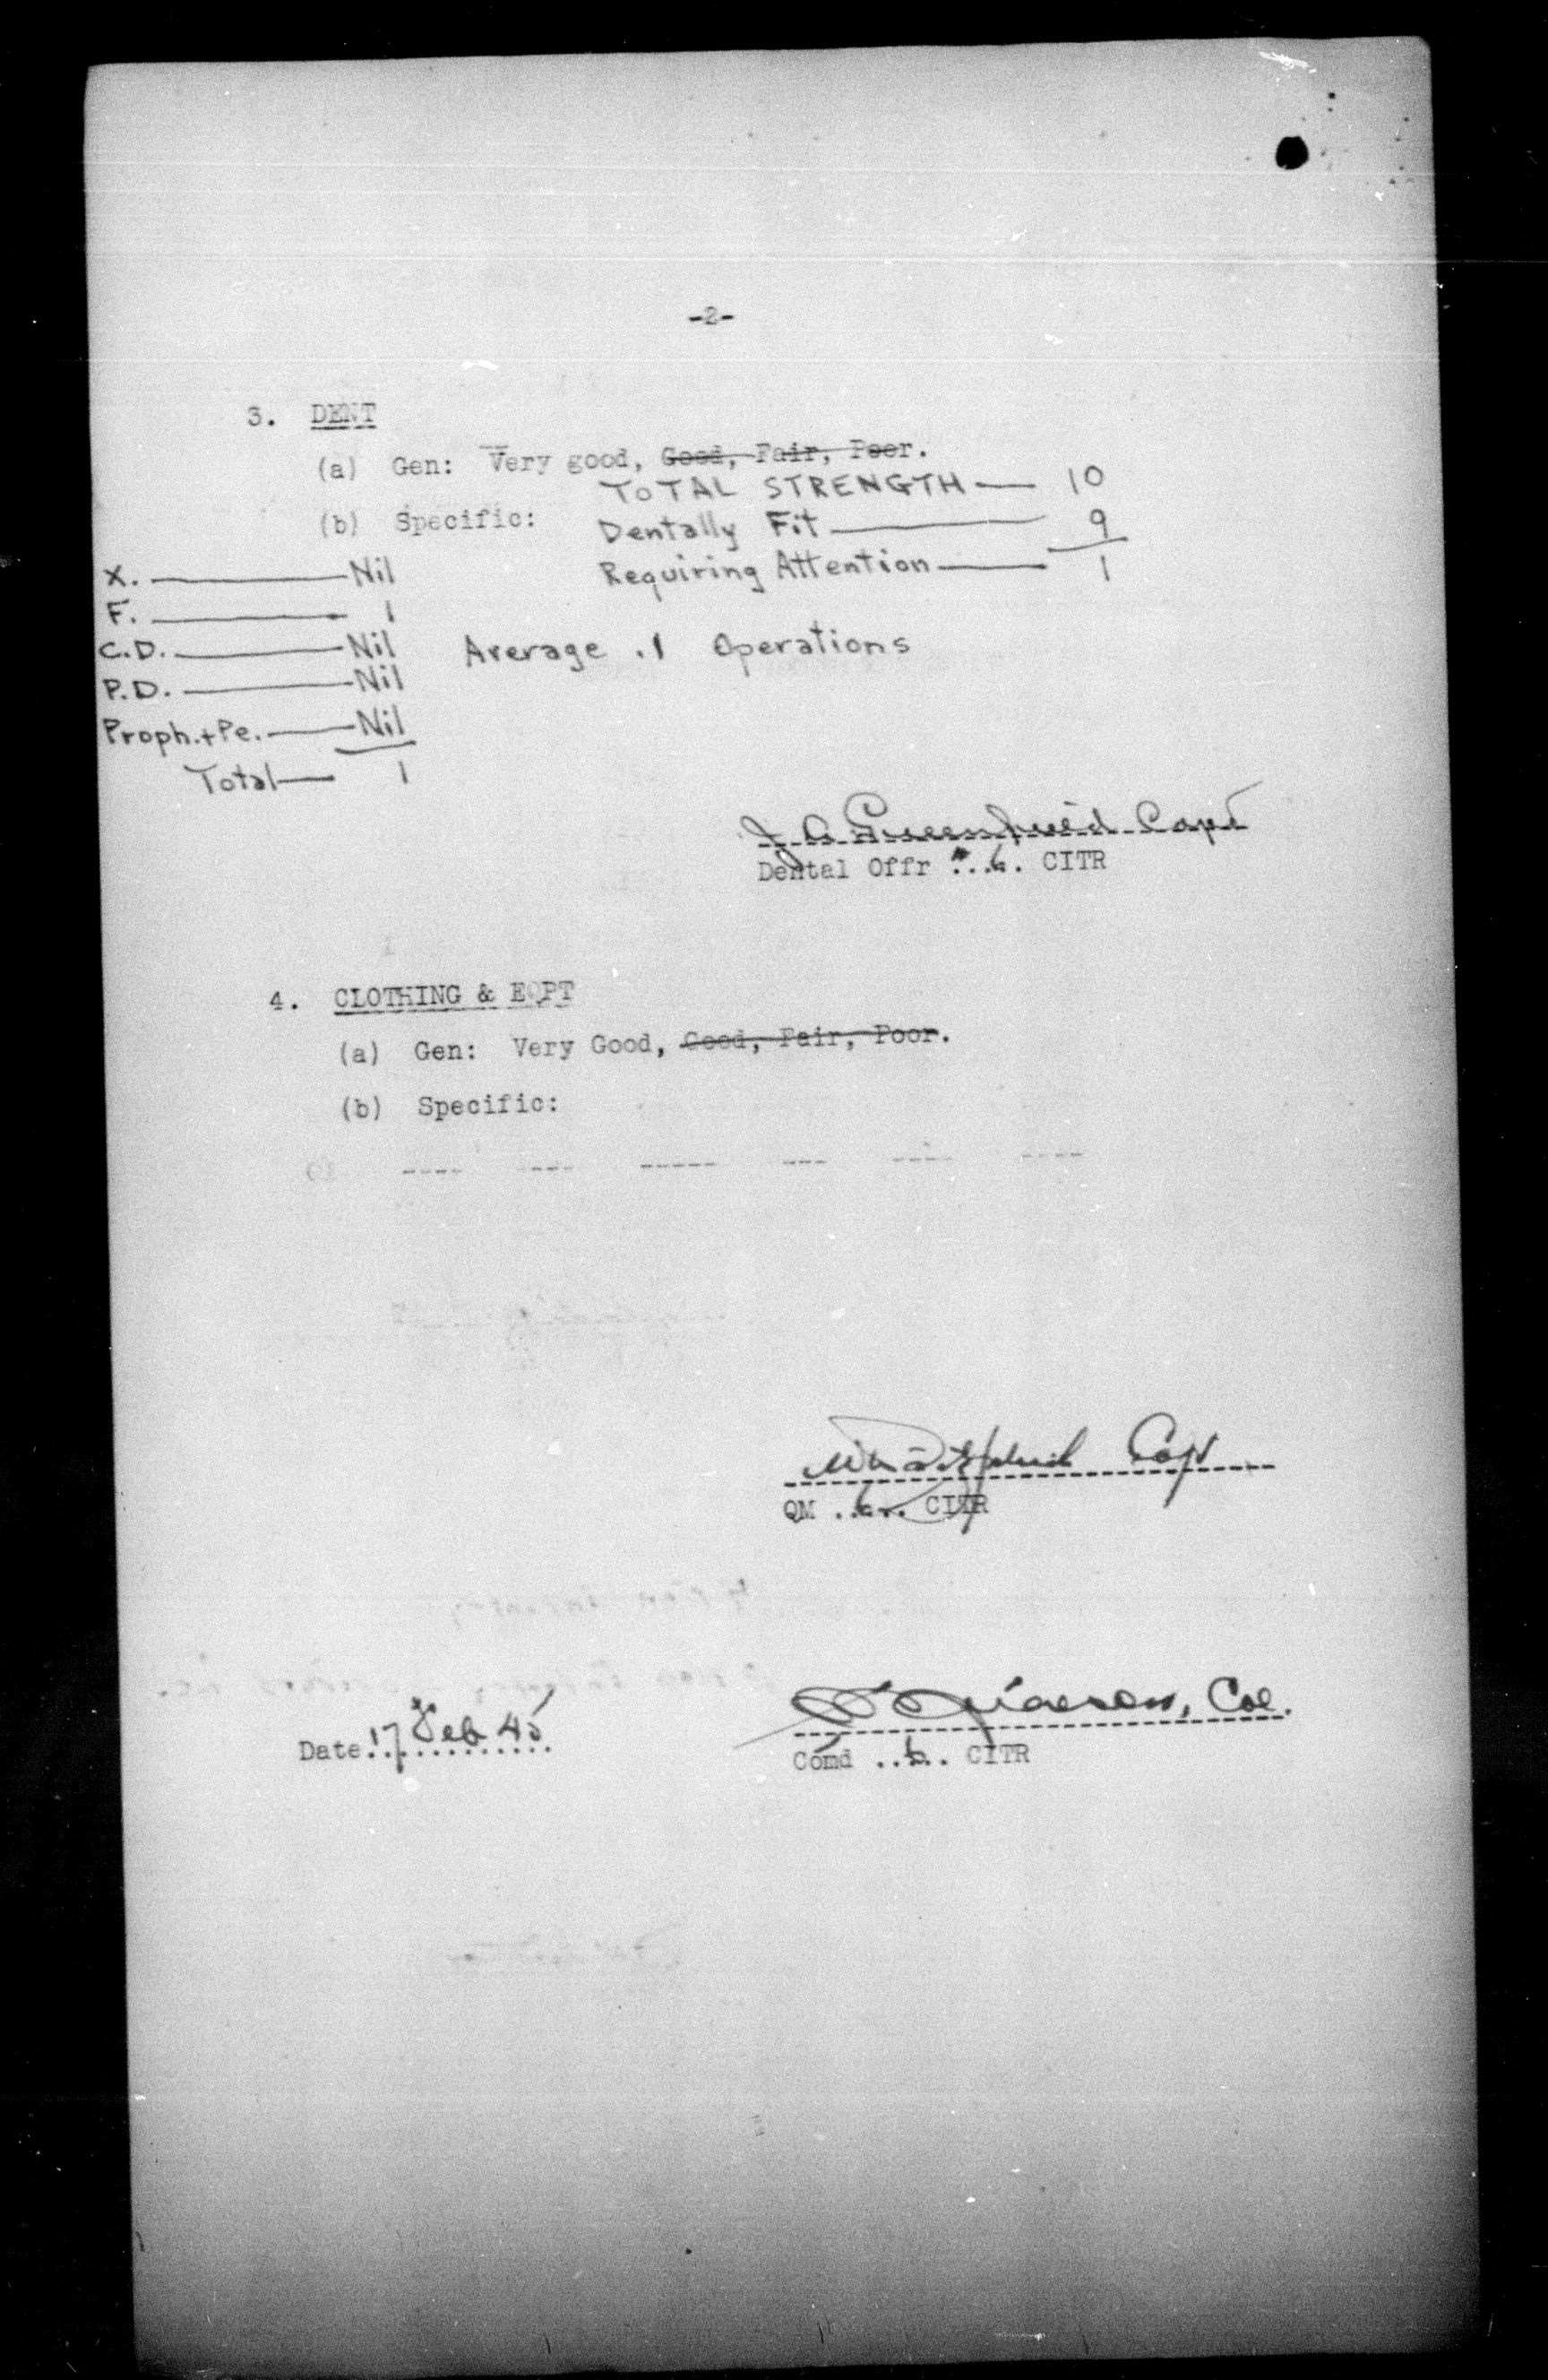 -2-
3. DENT
(a) Gen: Very good, Good, Fair, Poor.
TOTAL STRENGTH — 10
(b) Specific: Dentally Fit — 9
Requiring Attention — 1
X. — Nil
F. — 1
C.D. — Nil
Average .1 Operations
P.D. — Nil
Proph.+Pe. — Nil
Total — 1
Capt
Dental Offr ..6.. CITR
4. CLOTHING & EQPT
(a) Gen: Very Good, Good, Fair, Poor.
(b) Specific:
---- ---- ----- --- ---- ----
Capt
QM ..6.. CITR
Col.
Date 17 Feb 45
Comd ..6.. CITR